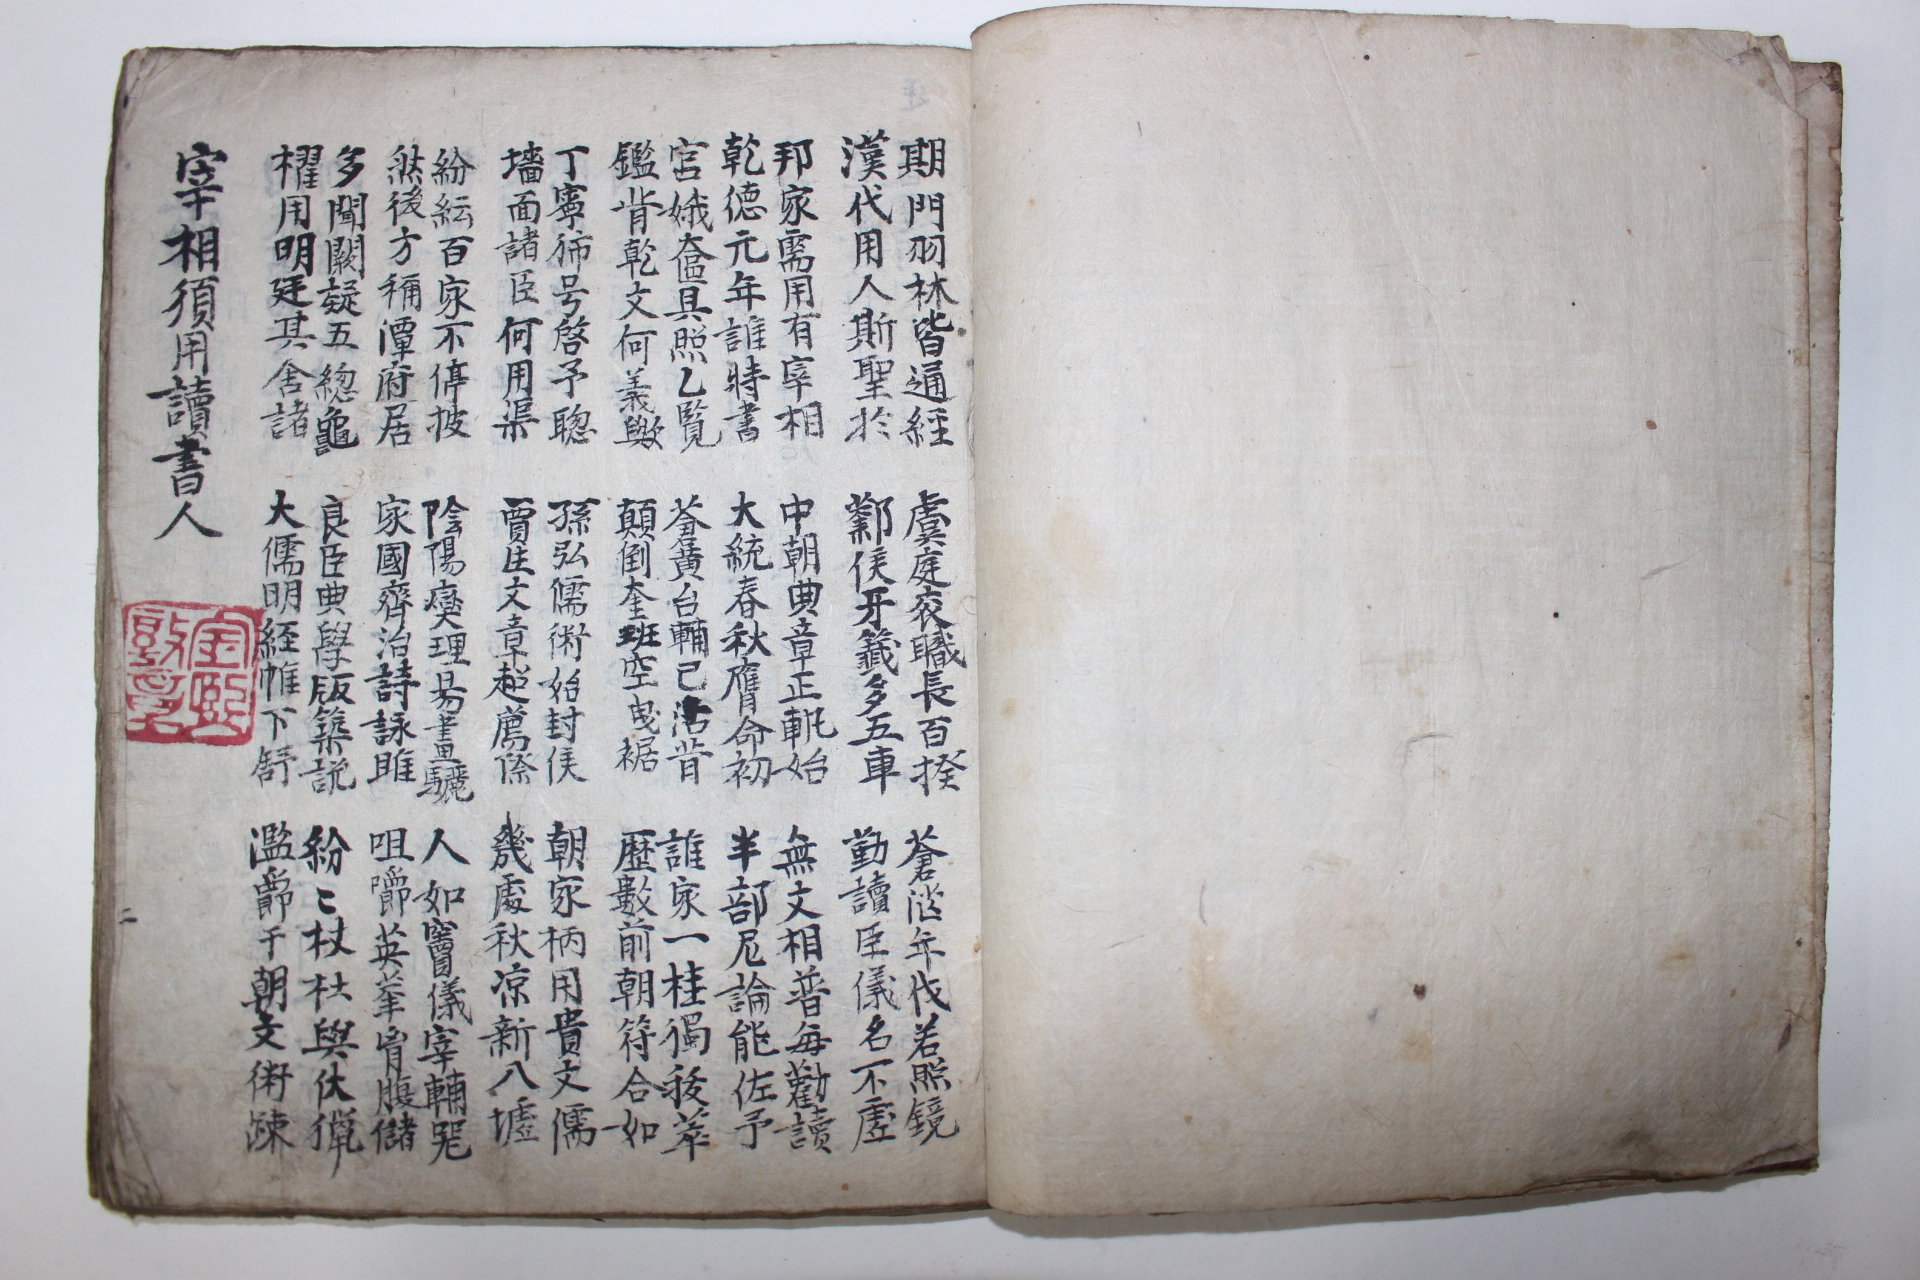 期門羽林皆通經
漢代用人斯聖於
虞庭衮職長百揆
鄴侯牙籤多五車
蒼茫年代若照鏡
勤讀臣儀名不虛
邦家需用有宰相
乾德元年誰時書
中朝典章正軌始
大統春秋膺命初
無文相普每勸讀
半部尼論能佐予
宮娥奩具照乙覽
鑑背乾文何義歟
蒼黃台輔已沽昔
顛倒奎班空曳裾
誰家一桂獨後萃
歷數前朝符合如
丁寧渙号啓予聰
墻面諸臣何用渠
孫弘儒術始封侯
賈生文章超薦際
朝家柄用貴文儒
幾處秋凉新八墟
紛紜百家不停披
然後方稱潭府居
陰陽燮理易畫驪
家國齊治詩詠雎
人如竇儀宰輔器
咀嚼英華胷腹儲
多聞闕疑五總龜
擢用明廷其舍諸
良臣典學版築説
大儒明經帷下舒
紛〻杕杜與伏獵
濫爵于朝文術踈
宰相須用讀書人
二